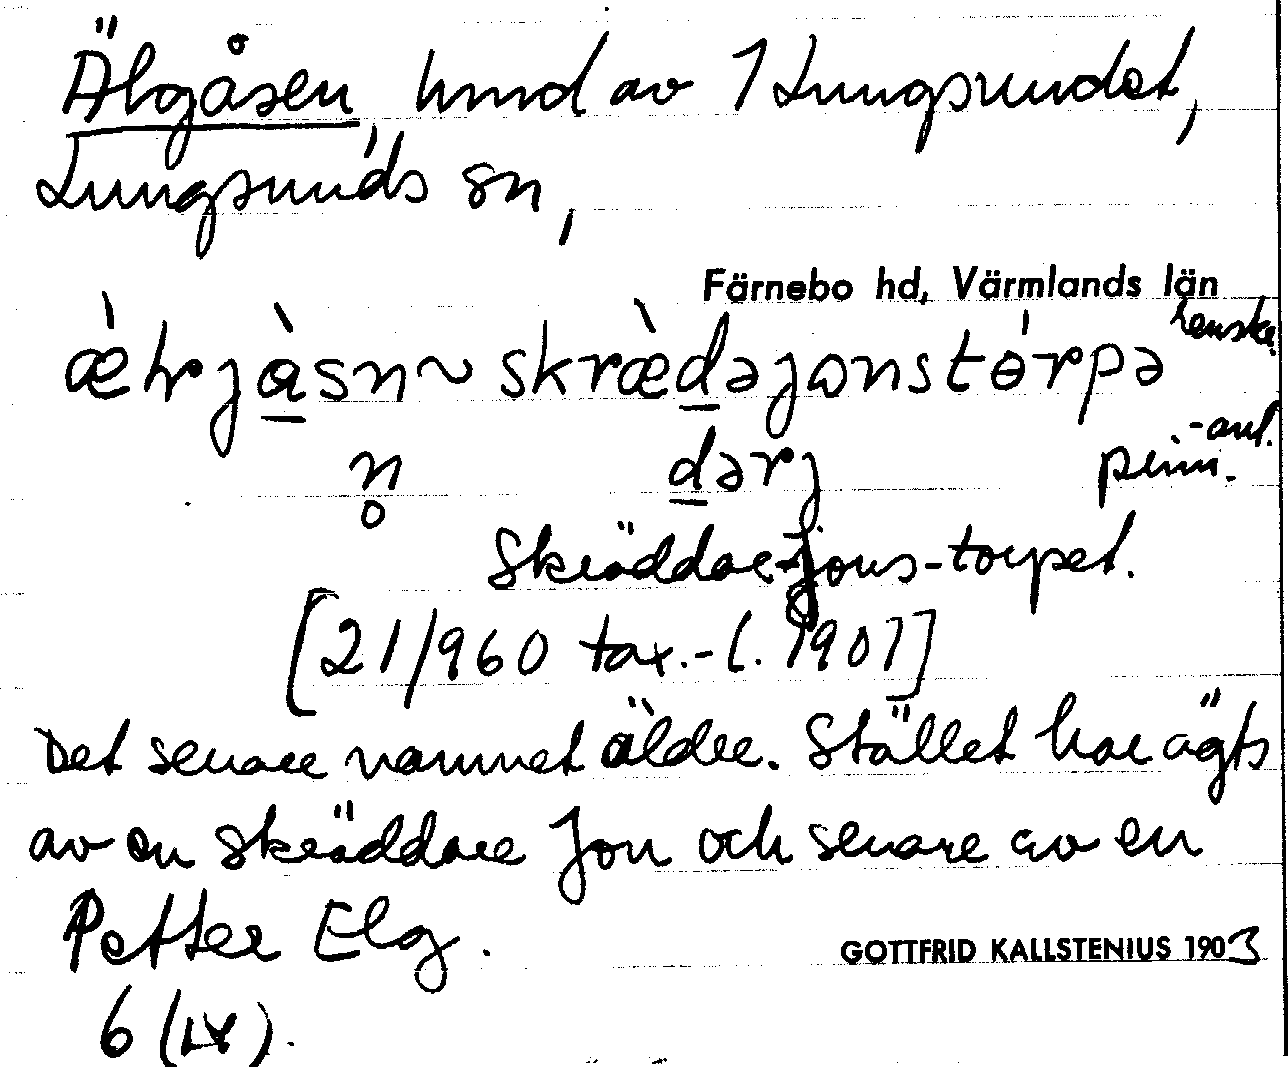 Älgåsen, hmd av 1 Lungsundet,
Lungsunds sn,
Färnebo hd, Värmlands län
ǽlrjàsn ~ skrædəjonstórpə
n̥ dərj penn.
Skräddar-Jons-torpet.
[21/960 tax.-l. 1901]
Det senare namnet äldre. Stället har ägts
av en skräddare Jon och senare av en
Petter Elg.
GOTTFRID KALLSTENIUS 1903
6 (IX).